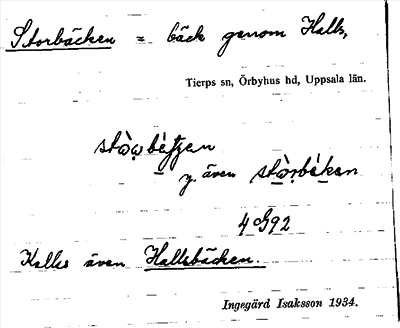 Storbäcken = bäck genom Halls,
Tierps sn, Örbyhus hd, Uppsala län.
y. även
4 G92
Kallas även Hallsbäcken.
Ingegärd Isaksson 1934.